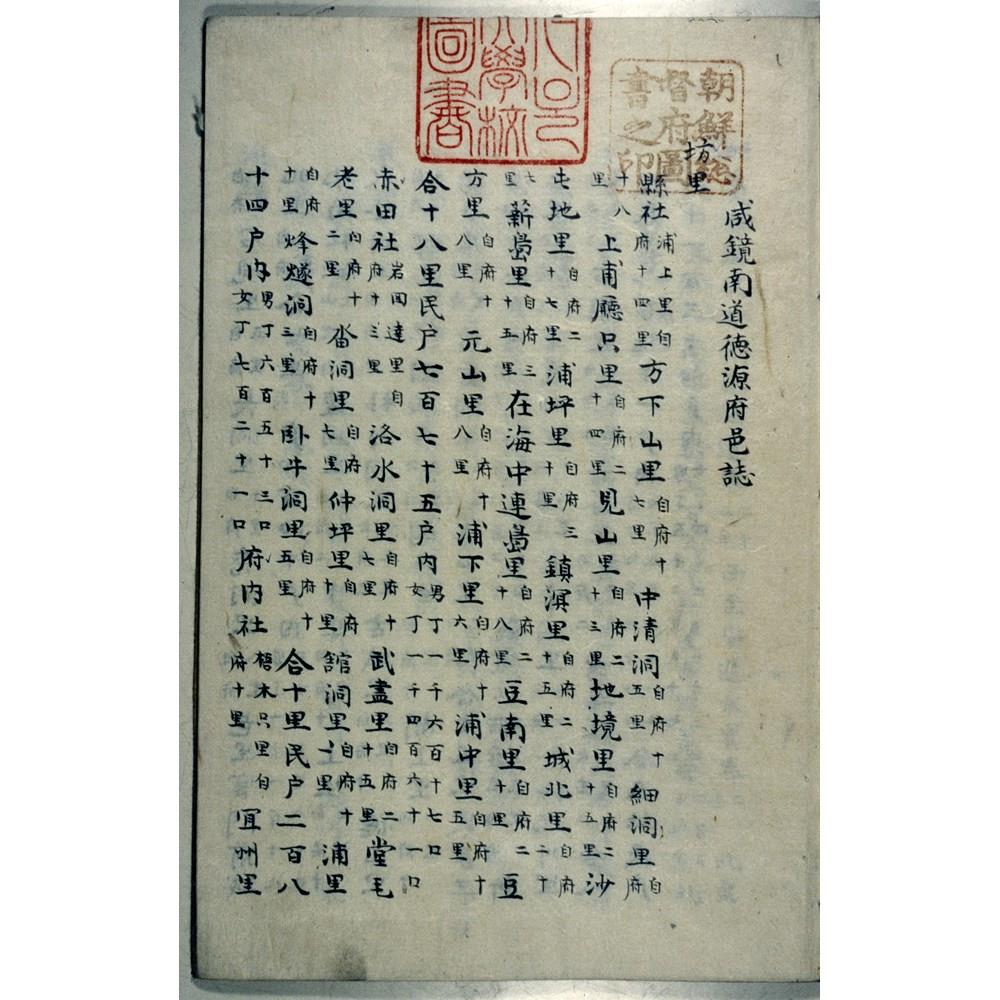 大學校
圖書
朝鮮総
督府圖
書之印
咸鏡南道德源府邑誌
坊里
縣社浦上里自府十四里方下山里自府十七里中清洞自府十五里細洞里自府
十八里上甫廳只里自府二十四里見山里自府二十三里地境里自府二十五里沙
屯地里自府二十七里浦坪里自府三十里鎮溟里自府二十五里城北里自府二十
七里薪島里自府三十五里在海中連島里自府二十八里豆南里自府二十里豆
方里自府十八里元山里自府十八里浦下里自府十六里浦中里自府十五里
合十八里民户七百七十五户內男丁一千六百十七口女丁一千四百六十一口
赤田社岩回達里自府十三里洛水洞里自府十七里武盡里自府二十五里堂毛
老里自府十二里沓洞里自府七里仲坪里自府十里舘洞里自府十一里浦里
自府十里烽燧洞自府十三里卧牛洞里自府十五里合十里民户二百八
十四户內男丁六百五十三口女丁七百二十一口府內社梧木只里自府十里宜州里